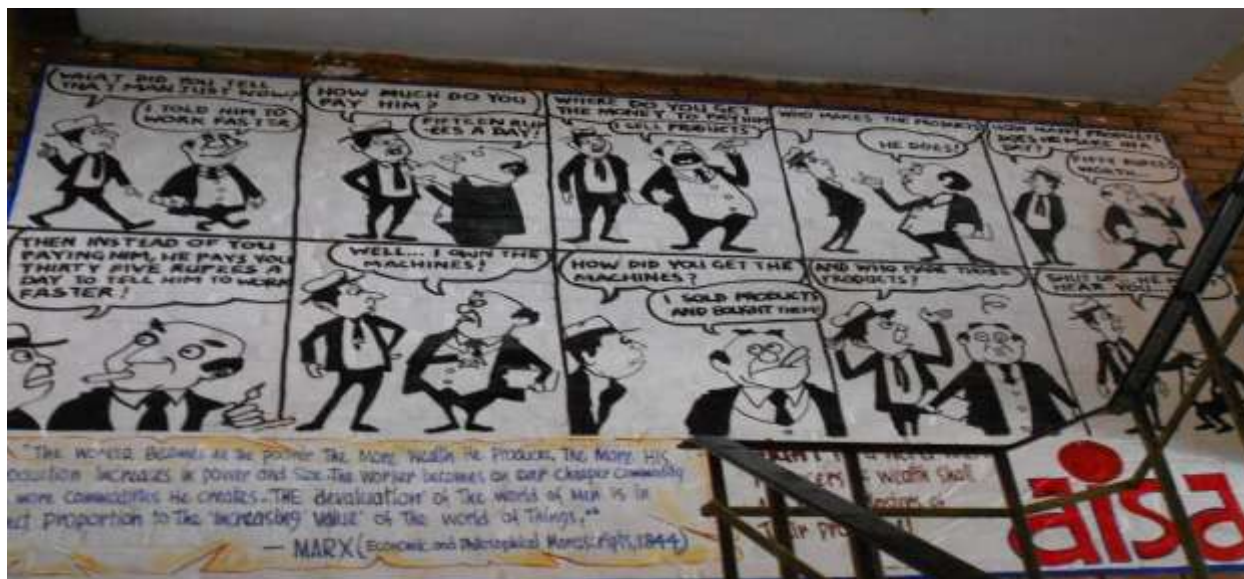 WHAT DID YOU TELL
THAT MAN JUST NOW?
I TOLD HIM TO
WORK FASTER
HOW MUCH DO YOU
PAY HIM?
FIFTEEN RUP
-EES A DAY!
WHERE DO YOU GET
THE MONEY TO PAY HIM
I SELL PRODUCTS
WHO MAKES THE PRODUCTS
HE DOES!
HOW MANY PRODUCTS
DOES HE MAKE IN A
DAY?
FIFTY RUPEES
WORTH...
THEN INSTEAD OF YOU
PAYING HIM, HE PAYS YOU
THIRTY FIVE RUPEES A
DAY TO TELL HIM TO WORK
FASTER!
WELL... I OWN THE
MACHINES!
HOW DID YOU GET THE
MACHINES?
I SOLD PRODUCTS
AND BOUGHT THEM!
AND WHO MADE THOSE
PRODUCTS?
SHUT UP
HEAR YOU
"The Worker Becomes all the poorer The More Wealth He Produces, The More His
production increases in power and Size. The Worker becomes an ever Cheaper Commodity
more Commodities He creates. THE devaluation of The World of Men is in
Proportion to The 'increasing Value' of The World of Things."
— MARX (Economic and Philosophical Manuscripts, 1844)
Wealth Shall
of
Their
aisa